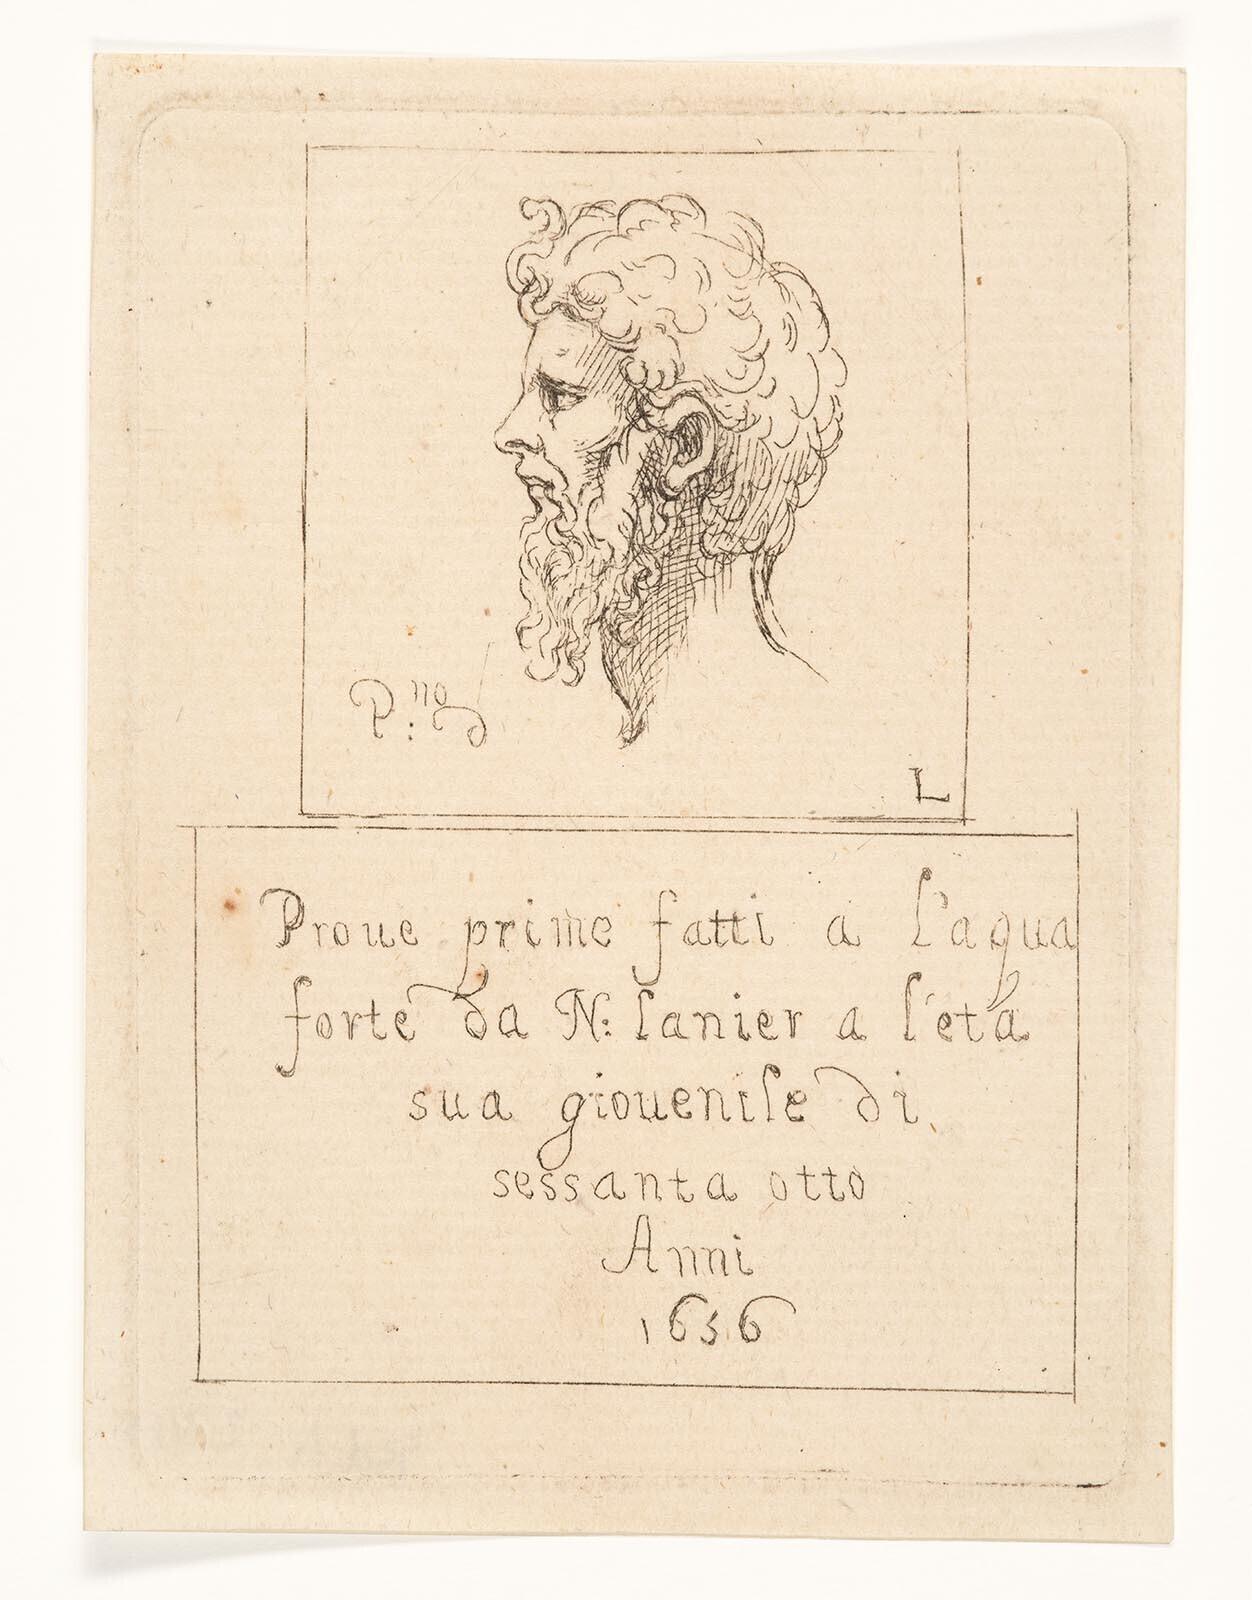 P:no d
L
Proue prime fatti a l'aqua
forte da N: Lanier a l'eta
sua giouenile di
sessanta otto
Anni
1656